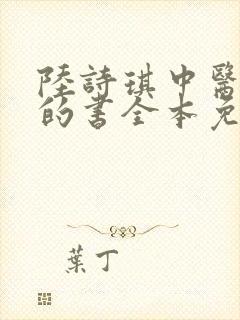 陸詩琪中醫
的書全本免
葉丁